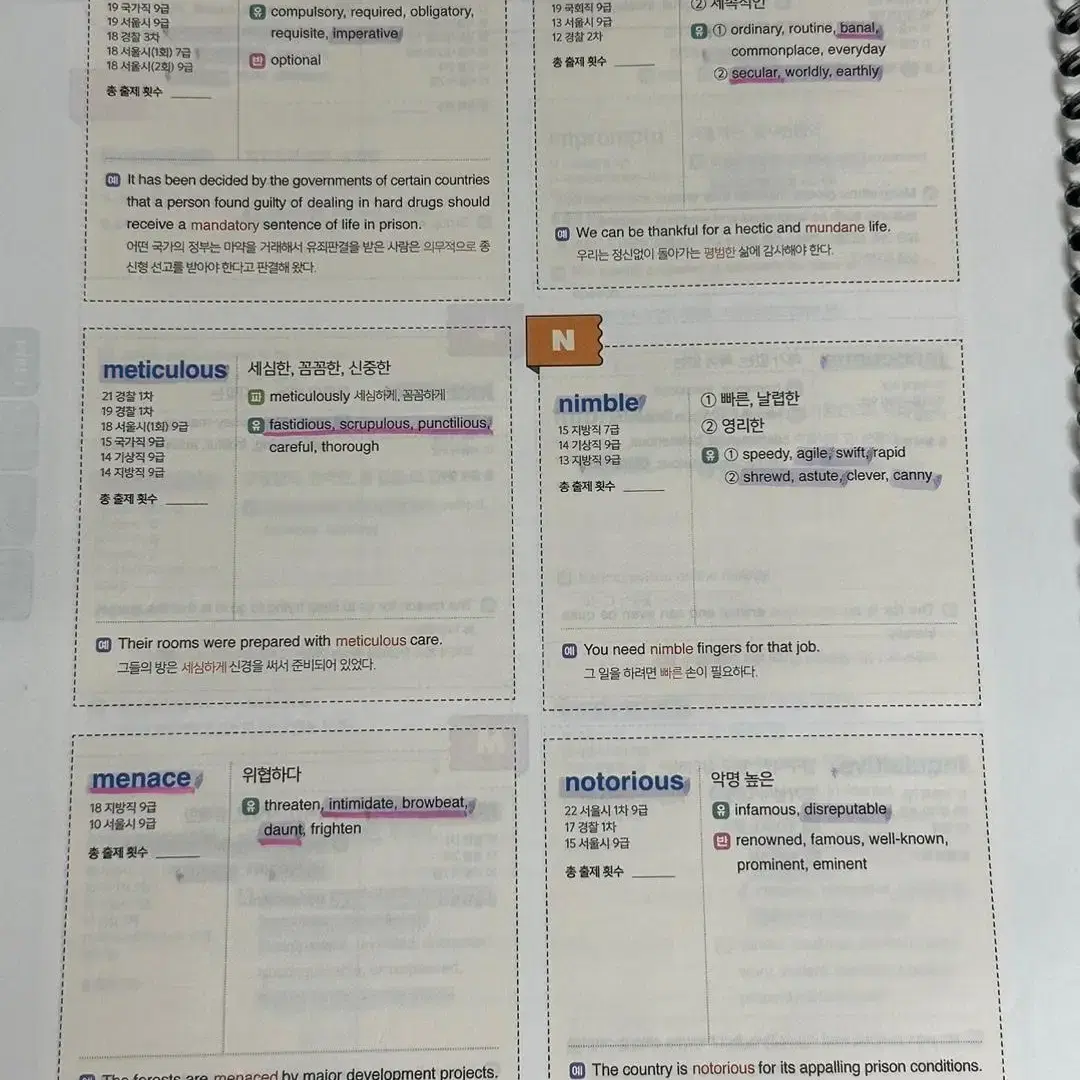 19 국가직 9급
19 서울시 9급
18 경찰 3차
18 서울시(1회) 7급
18 서울시(2회) 9급
총 출제 횟수
유 compulsory, required, obligatory,
requisite, imperative
반 optional
예 It has been decided by the governments of certain countries
that a person found guilty of dealing in hard drugs should
receive a mandatory sentence of life in prison.
어떤 국가의 정부는 마약을 거래해서 유죄판결을 받은 사람은 의무적으로 종
신형 선고를 받아야 한다고 판결해 왔다.
19 국회직 9급
13 서울시 9급
12 경찰 2차
총 출제 횟수
② 세속적인
유 ① ordinary, routine, banal,
commonplace, everyday
② secular, worldly, earthly
예 We can be thankful for a hectic and mundane life.
우리는 정신없이 돌아가는 평범한 삶에 감사해야 한다.
meticulous
21 경찰 1차
19 경찰 1차
18 서울시(1회) 9급
15 국가직 9급
14 기상직 9급
14 지방직 9급
총 출제 횟수
세심한, 꼼꼼한, 신중한
파 meticulously 세심하게, 꼼꼼하게
유 fastidious, scrupulous, punctilious,
careful, thorough
예 Their rooms were prepared with meticulous care.
그들의 방은 세심하게 신경을 써서 준비되어 있었다.
N
nimble
15 지방직 7급
14 기상직 9급
13 지방직 9급
총 출제 횟수
① 빠른, 날렵한
② 영리한
유 ① speedy, agile, swift, rapid
② shrewd, astute, clever, canny
예 You need nimble fingers for that job.
그 일을 하려면 빠른 손이 필요하다.
menace
18 지방직 9급
10 서울시 9급
총 출제 횟수
위협하다
유 threaten, intimidate, browbeat,
daunt, frighten
예 The forests are menaced by major development projects.
notorious
22 서울시 1차 9급
17 경찰 1차
15 서울시 9급
총 출제 횟수
악명 높은
유 infamous, disreputable
반 renowned, famous, well-known,
prominent, eminent
예 The country is notorious for its appalling prison conditions.